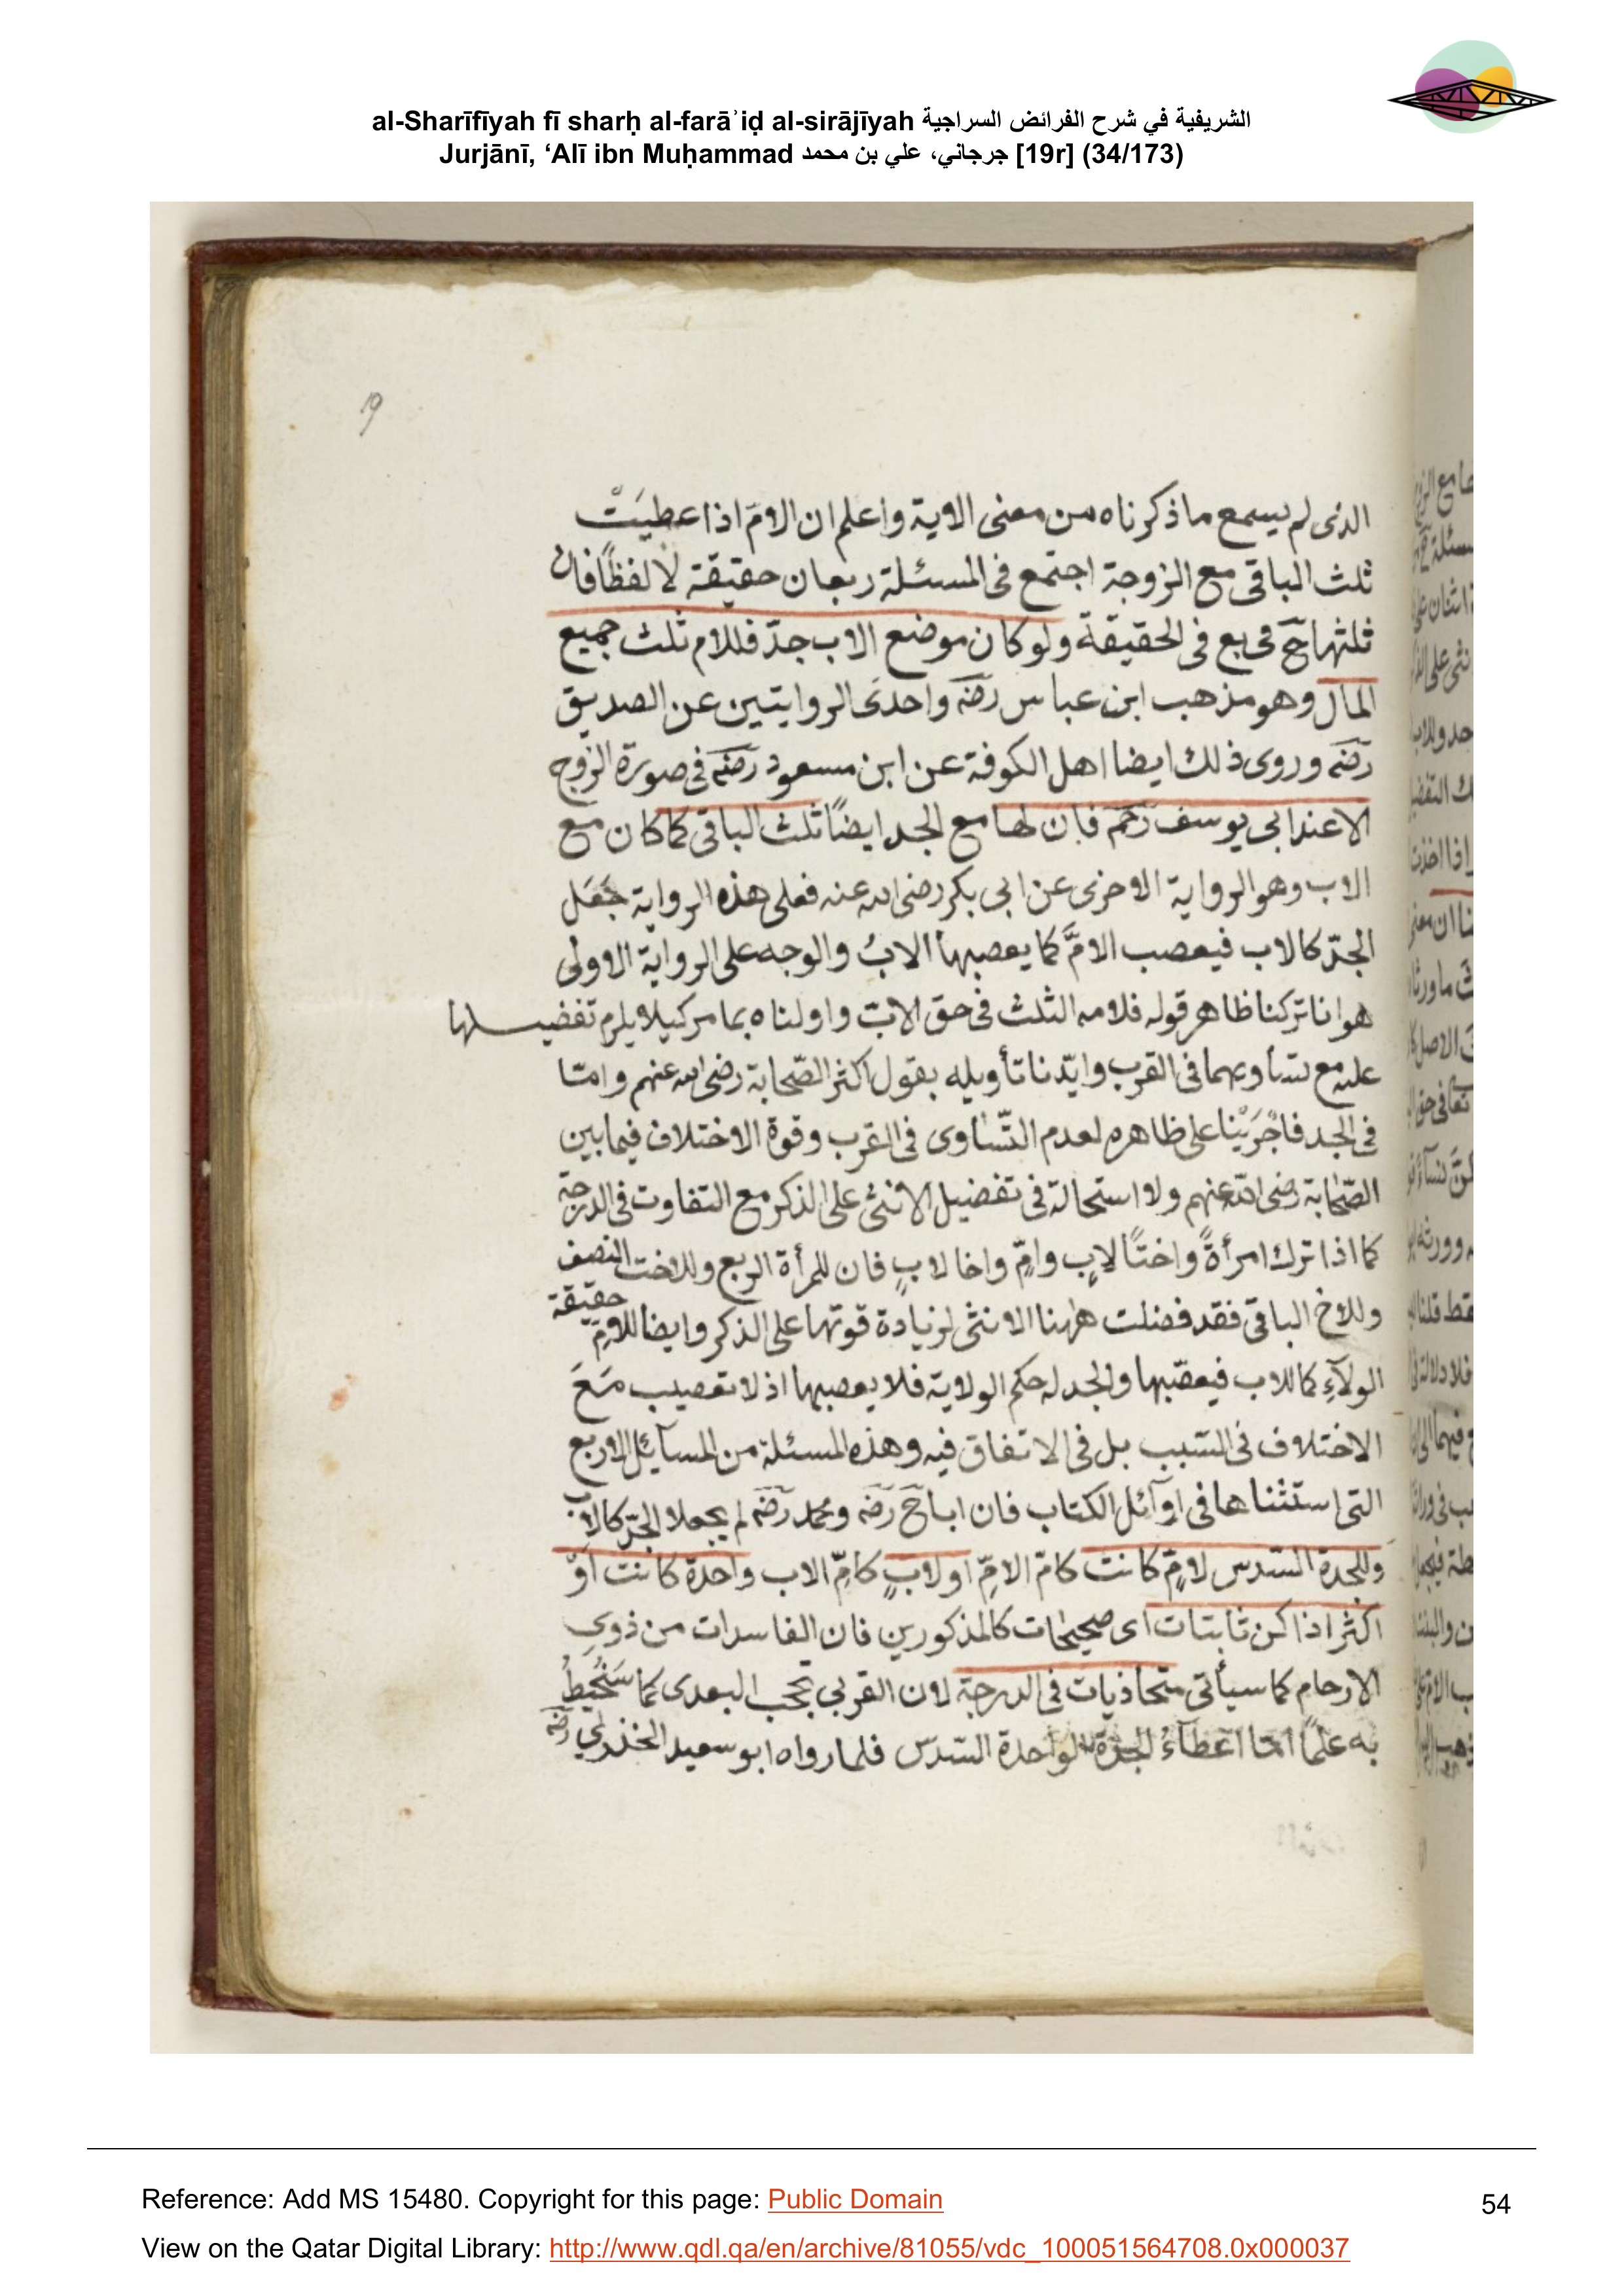 al-Sharīfīyah fī sharḥ al-farāʾiḍ al-sirājīyah الشريفية في شرح الفرائض السراجية
Jurjānī, ‘Alī ibn Muḥammad جرجاني، علي بن محمد [19r] (34/173)
19
الذى لم يسمع ما ذكرناه من معنى الاية واعلم ان الامّ اذا عطيت
ثلث الباقى مع الزوجة اجتمع فى المسئلة ربعان حقيقة لا لفظًا فان
ثلثها حَ ربع فى الحقيقة ولو كان موضع الاب جدّ فللام ثلث جميع
المال وهو مذهب ابن عباس رضه واحدى الروايتين عن الصديق
رضه وروى ذلك ايضا اهل الكوفة عن ابن مسعود رضه فى صورة الزوج
الا عند ابى يوسف رحمه فان لها مع الجد ايضًا ثلث الباقى كما كان مع
الاب وهو الرواية الاخرى عن ابى بكر رضى الله عنه فعلى هذه الرواية جعَل
الجدّ كالاب فيعصب الامَّ كما يعصبها الابُ والوجه على الرواية الاولى
هو انا تركنا ظاهر قوله فلامه الثلث فى حق الاب واولناه بما مر كيلا يلزم تفضيلها
عليه مع تساويهما فى القرب وايّدنا تأويله بقول اكثر الصّحابة رضى الله عنهم وامّا
فى الجد فاجْرَيْنا على ظاهره لعدم التّساوى فى القرب وقوة الاختلاف فيما بين
الصّحابة رضى الله عنهم ولا استحالة فى تفضيل الانثى على الذكر مع التفاوت فى الدرجة
كما اذا ترك امرأةً واختًا لابٍ وامٍّ واخا لابٍ فان للمرأة الربع وللاخت النصف
وللاخ الباقى فقد فضلت ههنا الانثى لزيادة قوتها على الذكر وايضا للامّ حقيقة
الولاَدِ كما للاب فيعصّبها والجد له حكم الولاية فلا يعصبها اذ لا تعصيب مَعَ
الاختلاف فى السّبب بل فى الاتفاق فيه وهذه المسئلة من المسآئل الاربع
التى استثناها فى اوآئل الكتاب فان ابا حَ رضه ومحمد رضه لم يجعلا الجدّ كالاب
وللجدة السّدس لامٍّ كانت كامّ الامّ او لابٍ كامّ الاب واحدة كانت اَوْ
اكثر اذا كن ثابتات اى صحيحات كالمذكورين فان الفاسدات من ذوى
الارحام كما سيأتى متحاذيات فى الدرجة لان القربى تحجب البعدى كما سَتُحيطُ
به علمًا امّا اعطآءُ الجدّة الواحدة السّدس فلما رواه ابو سعيد الخذرى رضه
Reference: Add MS 15480. Copyright for this page: Public Domain
54
View on the Qatar Digital Library: http://www.qdl.qa/en/archive/81055/vdc_100051564708.0x000037